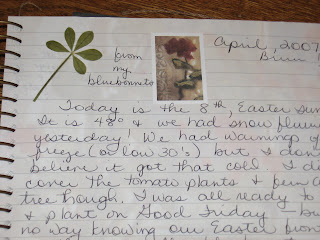 April, 2007
Brrrr!
from
my
bluebonnets
Today is the 8th, Easter Sun
It is 48° & we had snow flurr
yesterday! We had warnings of
freeze (or low 30's) but I don
believe it got that cold. I di
cover the tomato plants &
tree though. I was all ready to
& plant on Good Friday — bu
no way knowing our Easter